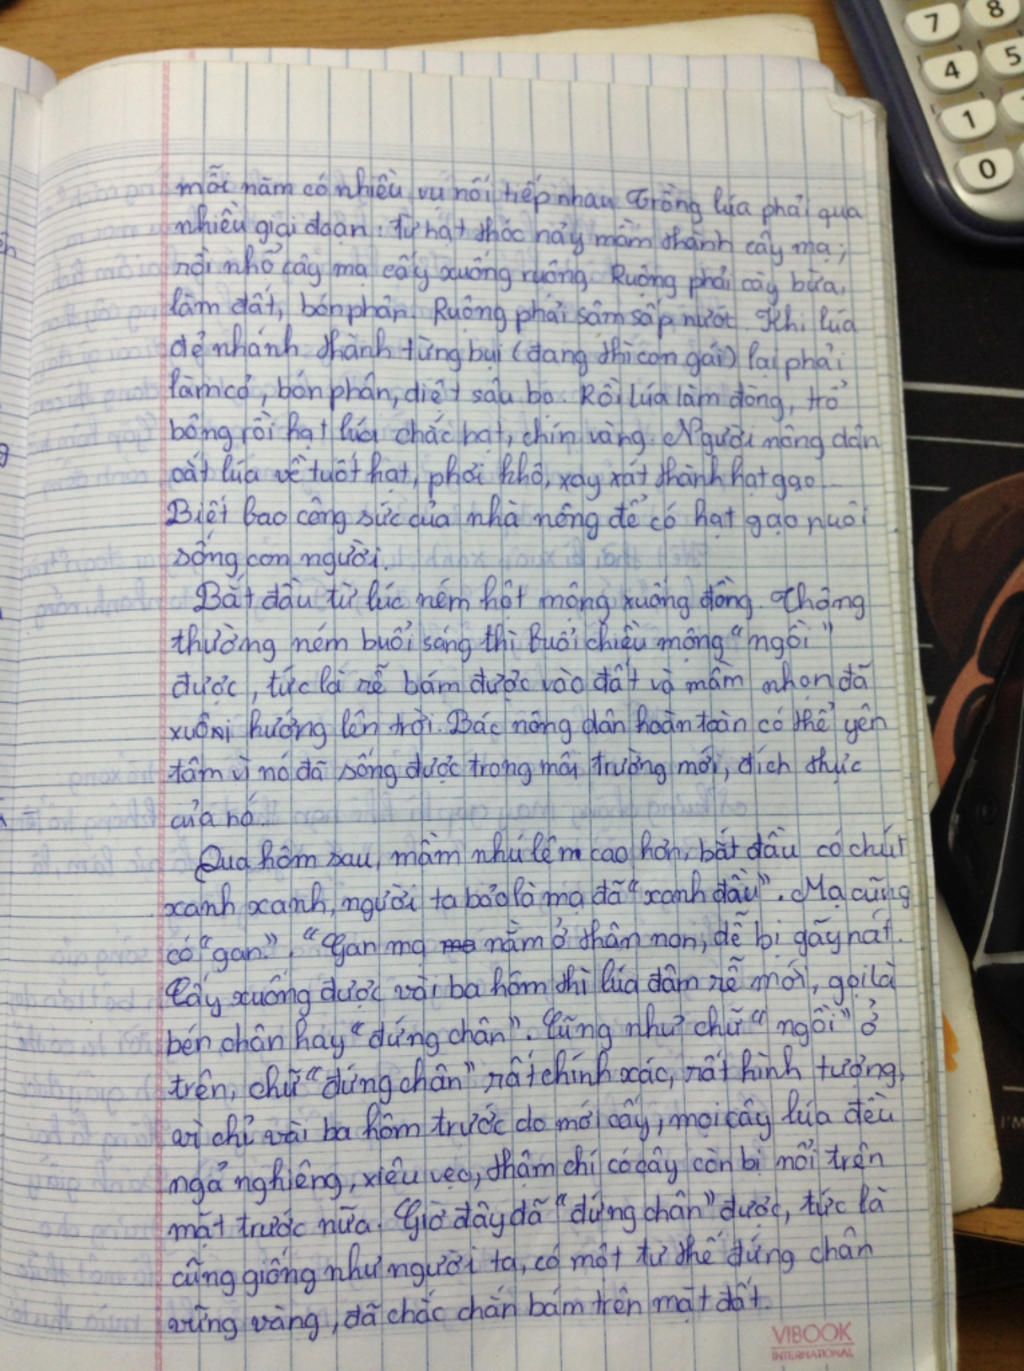 mỗi năm có nhiều vụ nối tiếp nhau. Trồng lúa phải qua
nhiều giai đoạn: từ hạt thóc nảy mầm thành cây mạ;
rồi nhổ cây mạ cấy xuống ruộng. Ruộng phải cày bừa,
làm đất, bón phân. Ruộng phải sâm sấp nước. Khi lúa
đẻ nhánh thành từng bụi (đang thì con gái) lại phải
làm cỏ, bón phân, diệt sâu bọ. Rồi lúa làm đòng, trổ
bông rồi hạt lúa chắc hạt, chín vàng. Người nông dân
cắt lúa về tuốt hạt, phơi khô, xay xát thành hạt gạo...
Biết bao công sức của nhà nông để có hạt gạo nuôi
sống con người.
Bắt đầu từ lúc ném hột mộng xuống đồng. Thông
thường ném buổi sáng thì buổi chiều mộng "ngồi"
được, tức là rễ bám được vào đất và mầm nhọn đã
xuôi hướng lên trời. Bác nông dân hoàn toàn có thể yên
tâm vì nó đã sống được trong môi trường mới, đích thực
của nó.
Qua hôm sau, mầm nhú lên cao hơn, bắt đầu có chút
xanh xanh, người ta bảo là mạ đã "xanh đầu". Mạ cũng
có "gan". "Gan mạ nằm ở thân non, dễ bị gãy nát.
Cấy xuống được vài ba hôm thì lúa đâm rễ mới, gọi là
bén chân hay "đứng chân". Cũng như chữ "ngồi" ở
trên, chữ "đứng chân" rất chính xác, rất hình tượng,
vì chỉ vài ba hôm trước do mới cấy, mọi cây lúa đều
ngả nghiêng, xiêu vẹo, thậm chí có cây còn bị nổi trên
mặt trước nữa. Giờ đây đã "đứng chân" được, tức là
cũng giống như người ta, có một tư thế đứng chân
vững vàng, đã chắc chắn bám trên mặt đất.
VIBOOK
INTERNATIONAL
7
8
4
5
1
0
I'M